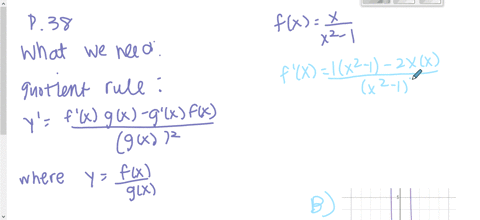 P.38
What we need:
quotient rule:
y' = f'(x) g(x) - g'(x) f(x) / (g(x))²
where y = f(x) / g(x)
f(x) = x / x²-1
f'(x) = 1(x²-1) - 2x(x) / (x²-1)
B)